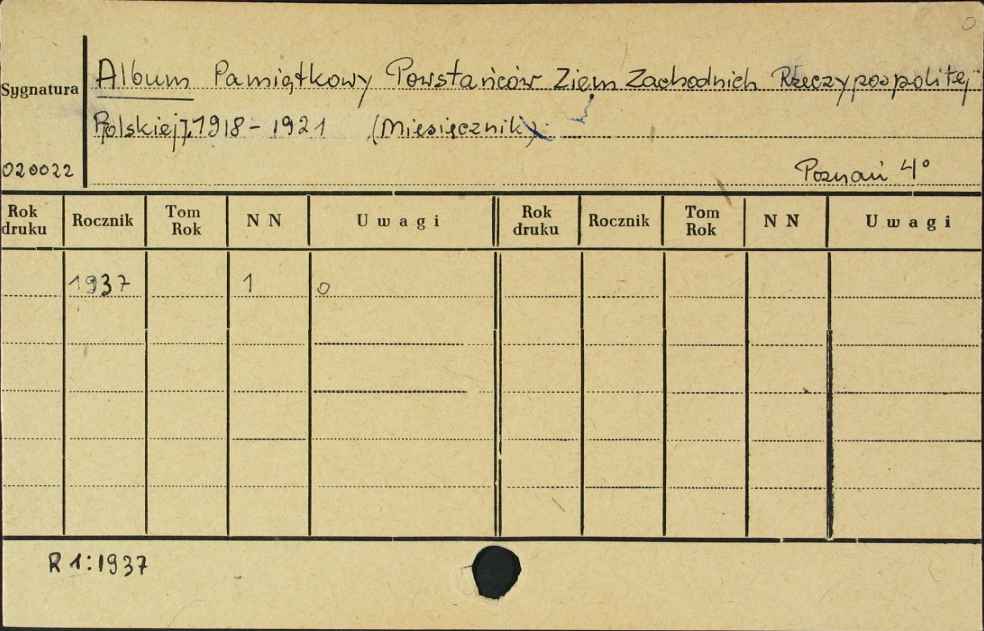 o
Sygnatura
Album Pamiątkowy Powstańców Ziem Zachodnich Rzeczypospolitej
Polskiej, 1918 - 1921 (Miesięcznik)
020022
Poznań 4°
Rok druku Rocznik Tom Rok NN Uwagi Rok druku Rocznik Tom Rok NN Uwagi
1937 1 o
R 1:1937